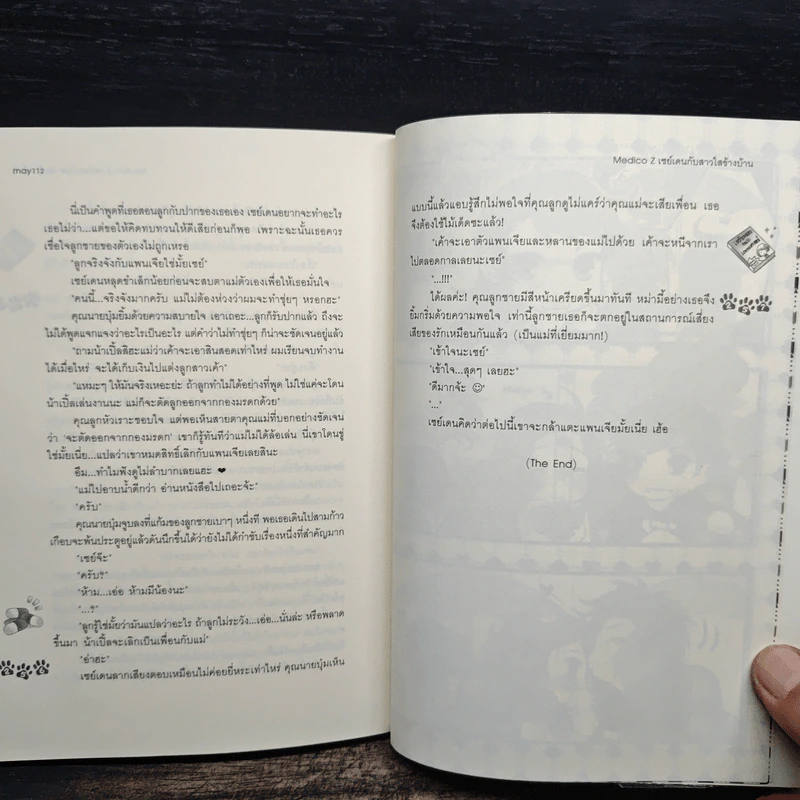 may112
นี่เป็นคำพูดที่เธอสอนลูกกับปากของเธอเอง เซย์เดนอยากจะทำอะไร
เธอไม่ว่า...แต่ขอให้คิดทบทวนให้ดีเสียก่อนก็พอ เพราะฉะนั้นเธอควร
เชื่อใจลูกชายของตัวเองไม่ถูกเหรอ
"ลูกจริงจังกับแพนเจียใช่มั้ยเซย์"
เซย์เดนหลุดขำเล็กน้อยก่อนจะสบตาแม่ตัวเองเพื่อให้เธอมั่นใจ
"คนนี้...จริงจังมากครับ แม่ไม่ต้องห่วงว่าผมจะทำชุ่ยๆ หรอกฮะ"
คุณนายบุ๋มยิ้มด้วยความสบายใจ เอาเถอะ...ลูกก็รับปากแล้ว ถึงจะ
ไม่ได้พูดแจกแจงว่าอะไรเป็นอะไร แต่คำว่าไม่ทำชุ่ยๆ ก็น่าจะชัดเจนอยู่แล้ว
"ถามน้าเปิ้ลสิฮะแม่ว่าเค้าจะเอาสินสอดเท่าไหร่ ผมเรียนจบทำงาน
ได้เมื่อไหร่ จะได้เก็บเงินไปแต่งลูกสาวเค้า"
"แหมะๆ ให้มันจริงเหอะย่ะ ถ้าลูกทำไม่ได้อย่างที่พูด ไม่ใช่แค่จะโดน
น้าเปิ้ลเล่นงานนะ แม่ก็จะตัดลูกออกจากกองมรดกด้วย"
คุณลูกหัวเราะชอบใจ แต่พอเห็นสายตาคุณแม่ที่บอกอย่างชัดเจน
ว่า 'จะตัดออกจากกองมรดก' เขาก็รู้ทันทีว่าแม่ไม่ได้ล้อเล่น นี่เขาโดนขู่
ใช่มั้ยเนี่ย...แปลว่าเขาหมดสิทธิ์เลิกกับแพนเจียเลยสินะ
อืม...ทำไมฟังดูไม่ลำบากเลยแฮะ ❤
"แม่ไปอาบน้ำดีกว่า อ่านหนังสือไปเถอะจ้ะ"
"ครับ"
คุณนายบุ๋มจูบลงที่แก้มของลูกชายเบาๆ หนึ่งที พอเธอเดินไปสามก้าว
เกือบจะพ้นประตูอยู่แล้วดันนึกขึ้นได้ว่ายังไม่ได้กำชับเรื่องหนึ่งที่สำคัญมาก
"เซย์จ๊ะ"
"ครับ?"
"ห้าม...เอ่อ ห้ามมีน้องนะ"
"...?"
"ลูกรู้ใช่มั้ยว่ามันแปลว่าอะไร ถ้าลูกไม่ระวัง...เอ่อ...นั่นล่ะ หรือพลาด
ขึ้นมา น้าเปิ้ลจะเลิกเป็นเพื่อนกับแม่"
"อ๋าฮะ"
เซย์เดนลากเสียงตอบเหมือนไม่ค่อยยี่หระเท่าไหร่ คุณนายบุ๋มเห็น
Medico Z เซย์เดนกับสาวใสข้างบ้าน
แบบนี้แล้วแอบรู้สึกไม่พอใจที่คุณลูกดูไม่แคร์ว่าคุณแม่จะเสียเพื่อน เธอ
จึงต้องใช้ไม้เด็ดซะแล้ว!
"เค้าจะเอาตัวแพนเจียและหลานของแม่ไปด้วย เค้าจะหนีจากเรา
ไปตลอดกาลเลยนะเซย์"
"...!!!"
ได้ผลค่ะ! คุณลูกชายมีสีหน้าเครียดขึ้นมาทันที หม่ามี้อย่างเธอจึง
ยิ้มกริ่มด้วยความพอใจ เท่านี้ลูกชายเธอก็จะตกอยู่ในสถานการณ์เสี่ยง
เสียของรักเหมือนกันแล้ว (เป็นแม่ที่เยี่ยมมาก!)
"เข้าใจนะเซย์"
"เข้าใจ...สุดๆ เลยฮะ"
"ดีมากจ้ะ ☺"
"..."
เซย์เดนคิดว่าต่อไปนี้เขาจะกล้าแตะแพนเจียมั้ยเนี่ย เฮ้อ
(The End)